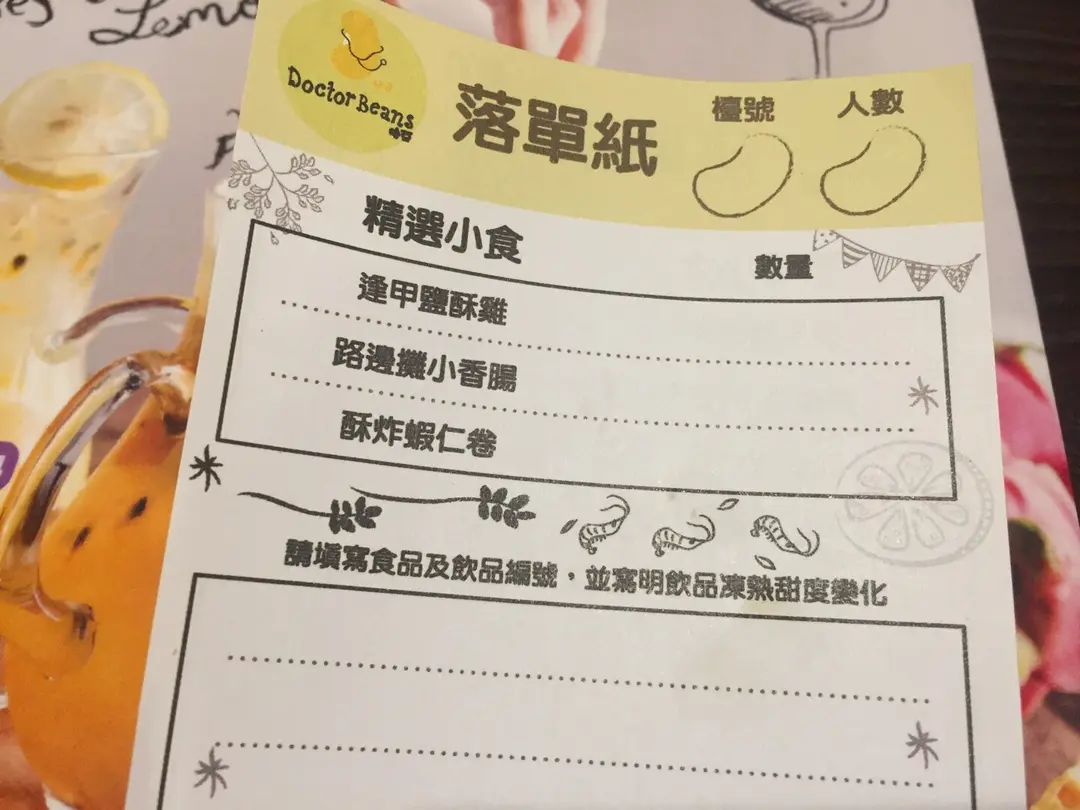 Lemo
Doctor Beans
落單紙
檯號
人數
精選小食
數量
逢甲鹽酥雞
路邊攤小香腸
酥炸蝦仁卷
請填寫食品及飲品編號，並寫明飲品凍熱甜度變化